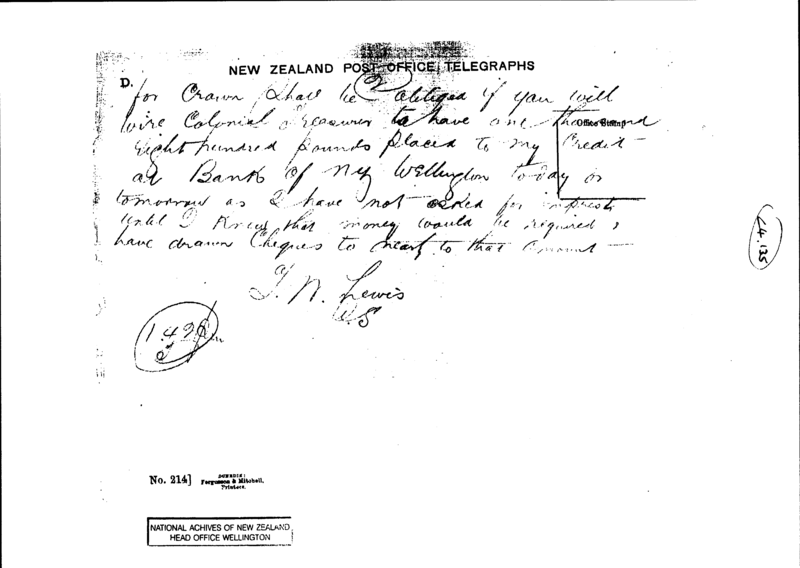 NEW ZEALAND POST OFFICE TELEGRAPHS
D.
2
for Crown, Shall be obliged if you will
wire Colonial Treasurer to have one thousand
Office Stamp
eight hundred pounds placed to my Credit
at Bank of NZ Wellington today or
tomorrow as I have not asked for imprest
until I knew that money would be required &
have drawn Cheques to nearly to that amount
T. W. Lewis
U.S
L4.135
No. 214]
DUNEDIN:
Fergusson & Mitchell,
Printers.
NATIONAL ACHIVES OF NEW ZEALAND
HEAD OFFICE WELLINGTON